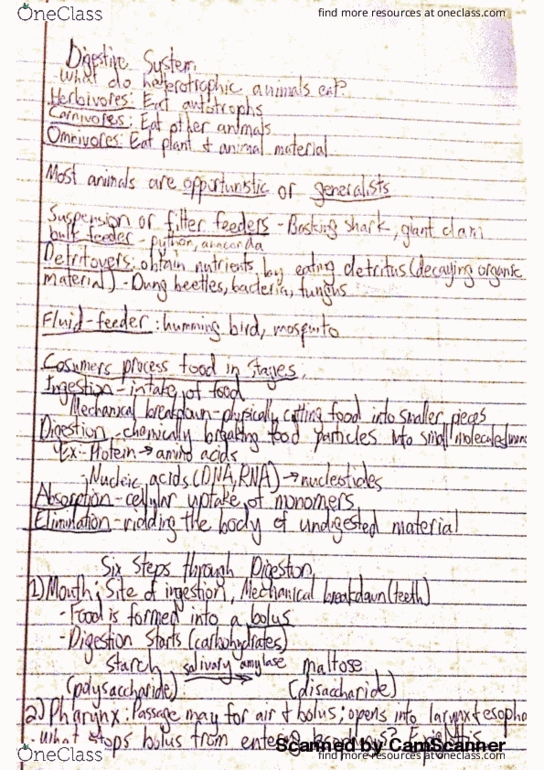 OneClass
find more resources at oneclass.com
Digestive System
-What do heterotrophic animals eat?
Herbivores: Eat autotrophs
Carnivores: Eat other animals
Omnivores: Eat plant & animal material
Most animals are opportunistic or generalists
Suspension or filter feeders - Basking shark, giant clam
bulk feeder - python, anaconda
Detritovers: obtain nutrients by eating detritus (decaying organic
material) - Dung beetles, bacteria, fungus
Fluid-feeder: humming bird, mosquito
Cosumers process food in stages.
Ingestion - intake of food
Mechanical breakdown - physically cutting food into smaller pieces
Digestion - chemically breaking food particles into small molecules
Ex - Protein → amino acids
- Nucleic acids (DNA, RNA) → nucleotides
Absorption - cellular uptake of monomers
Elimination - ridding the body of undigested material
Six Steps through Digestion
1) Mouth: Site of ingestion, Mechanical breakdown (teeth)
- Food is formed into a bolus
- Digestion starts (carbohydrates)
starch salivary amylase → maltose
(polysaccharide) (disaccharide)
2) Pharynx: Passage way for air & bolus; opens into larynx & esopha
- What stops bolus from entering
Scanned by CamScanner
OneClass
find more resources at oneclass.com